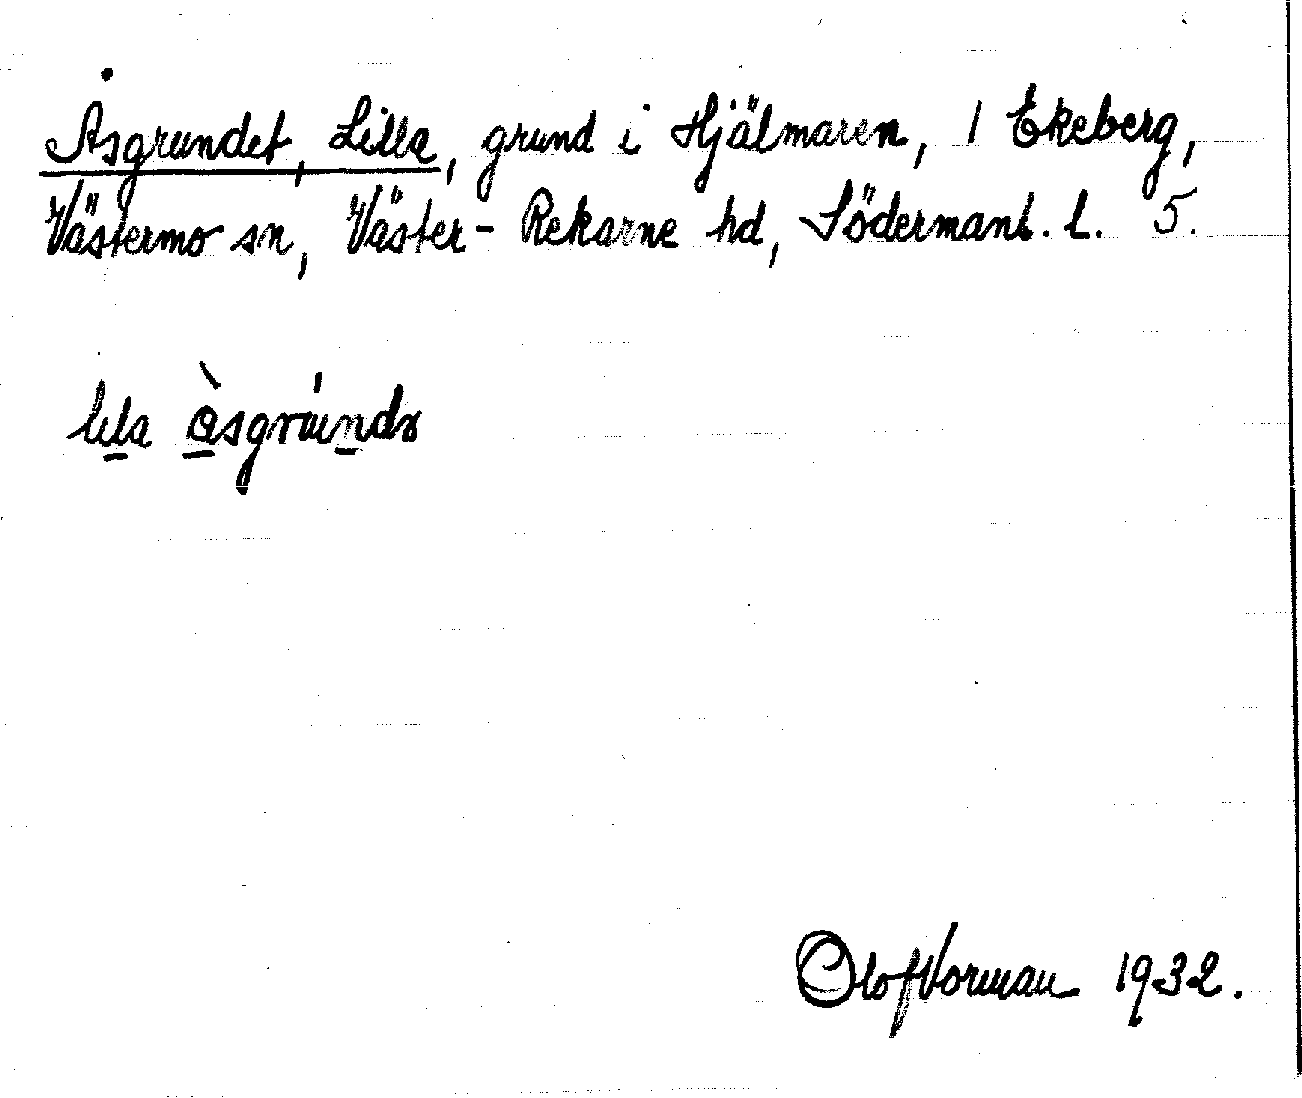 Åsgrundet, Lilla, grund i Hjälmaren, 1 Ekeberg,
Västermo sn, Väster-Rekarne hd, Södermanl. l. 5.
lila åsgrunds
Olof Vorman 1932.